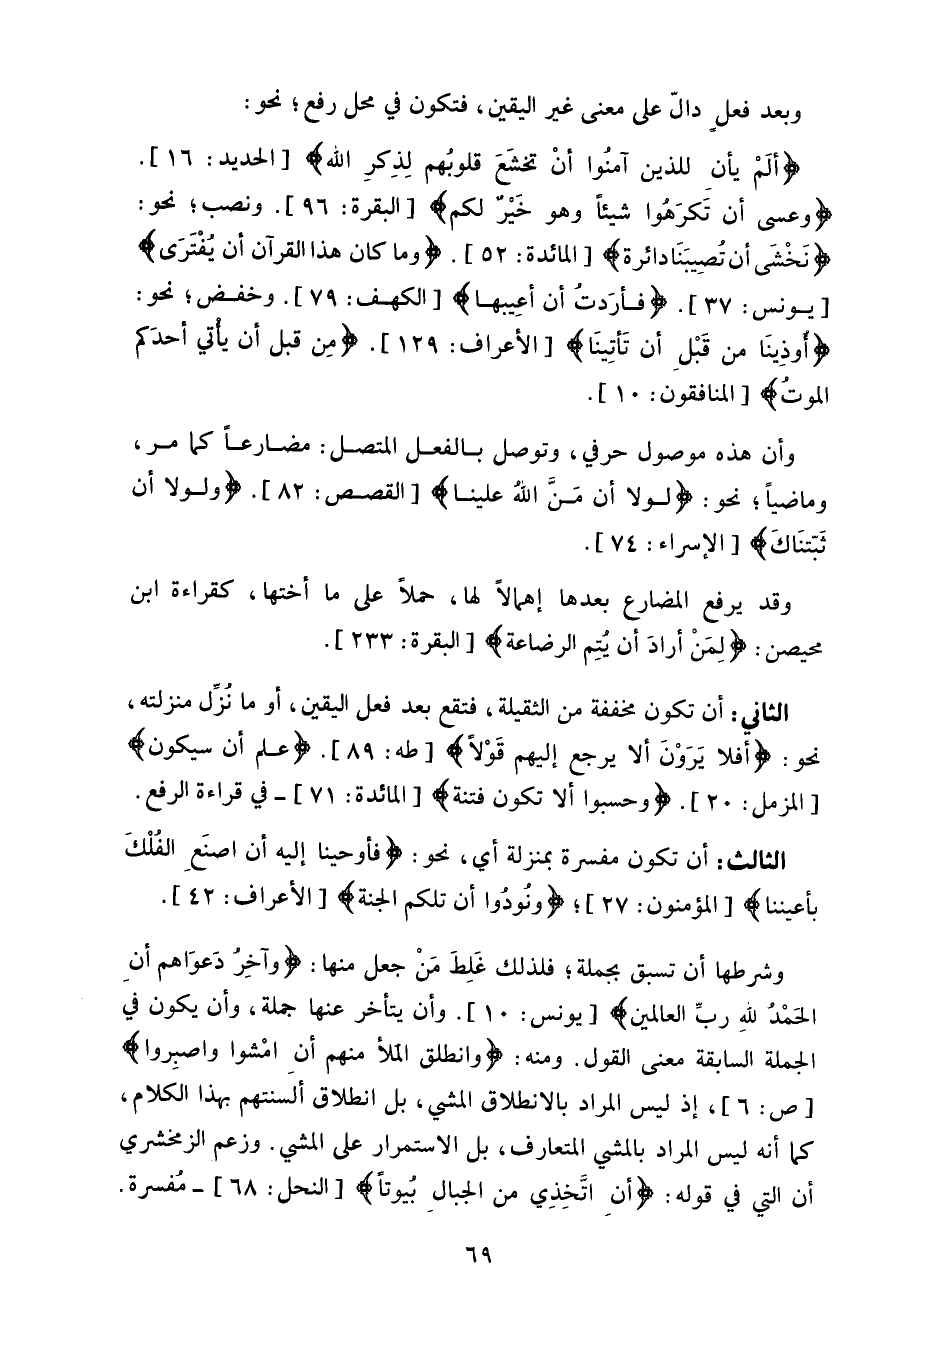 وبعد فعلٍ دالّ على معنى غير اليقين، فتكون في محل رفع؛ نحو:
﴿ألَمْ يأنِ للذين آمنُوا أنْ تخشَعَ قلوبُهم لِذِكرِ الله﴾ [الحديد: ١٦].
﴿وعسى أن تَكرَهُوا شيئاً وهو خَيْرٌ لكم﴾ [البقرة: ٩٦]. ونصب؛ نحو:
﴿نَخْشَى أن تُصيبَنَا دائرة﴾ [المائدة: ٥٢]. ﴿وما كان هذا القرآن أن يُفْتَرَى﴾
[يونس: ٣٧]. ﴿فأرَدتُ أن أعِيبها﴾ [الكهف: ٧٩]. وخفض؛ نحو:
﴿أُوذِينَا من قَبْلِ أن تَأتينَا﴾ [الأعراف: ١٢٩]. ﴿مِن قبل أن يأْتي أحدَكم
الموتُ﴾ [المنافقون: ١٠].
وأن هذه موصول حرفي، وتوصل بالفعل المتصل: مضارعاً كما مر،
وماضياً؛ نحو: ﴿لولا أن مَنَّ اللهُ علينا﴾ [القصص: ٨٢]. ﴿ولولا أن
ثَبّتنَاكَ﴾ [الإسراء: ٧٤].
وقد يرفع المضارع بعدها إهمالاً لها، حملاً على ما أختها، كقراءة ابن
محيصن: ﴿لِمَنْ أرادَ أن يُتِم الرضاعة﴾ [البقرة: ٢٣٣].
الثاني: أن تكون مخففة من الثقيلة، فتقع بعد فعل اليقين، أو ما نُزِّل منزلته،
نحو: ﴿أفلا يَرَوْنَ ألا يرجع إليهم قَوْلاً﴾ [طه: ٨٩]. ﴿علم أن سيكون﴾
[المزمل: ٢٠]. ﴿وحسبوا ألا تكون فتنة﴾ [المائدة: ٧١] ـ في قراءة الرفع.
الثالث: أن تكون مفسرة بمنزلة أي، نحو: ﴿فأوحينا إليه أن اصنَعِ الفُلْكَ
بأعيننا﴾ [المؤمنون: ٢٧]؛ ﴿ونُودُوا أن تلكم الجنة﴾ [الأعراف: ٤٢].
وشرطها أن تسبق بجملة؛ فلذلك غَلِطَ مَنْ جعل منها: ﴿وآخِرُ دَعوَاهم أنِ
الحَمْدُ للهِ ربِّ العالمين﴾ [يونس: ١٠]. وأن يتأخر عنها جملة، وأن يكون في
الجملة السابقة معنى القول. ومنه: ﴿وانطلق الملأ منهم أنِ امْشوا واصبِروا﴾
[ص: ٦]، إذ ليس المراد بالانطلاق المشي، بل انطلاق ألسنتهم بهذا الكلام،
كما أنه ليس المراد بالمشي المتعارف، بل الاستمرار على المشي. وزعم الزمخشري
أن التي في قوله: ﴿أنِ اتَّخِذِي من الجبالِ بُيوتاً﴾ [النحل: ٦٨] ـ مُفسرة.
٦٩